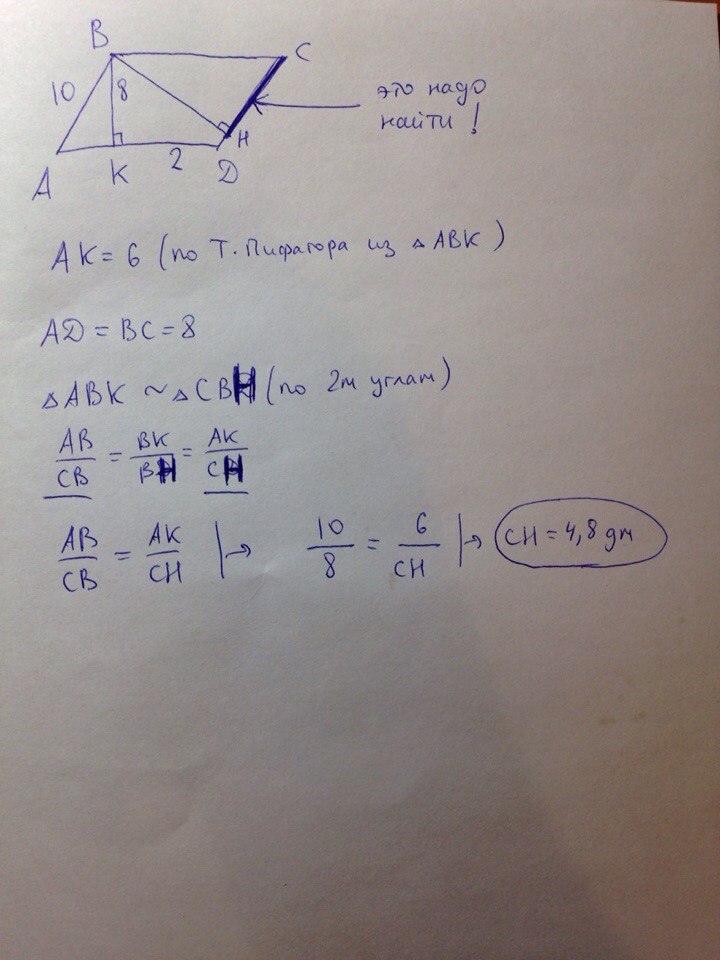 B
C
10
8
это надо
найти!
H
A
K
2
D
AK = 6 (по Т. Пифагора из △ABK)
AD = BC = 8
△ABK ~ △CBH (по 2м углам)
AB/CB = BK/BH = AK/CH
AB/CB = AK/CH |→ 10/8 = 6/CH |→ CH = 4,8 дм